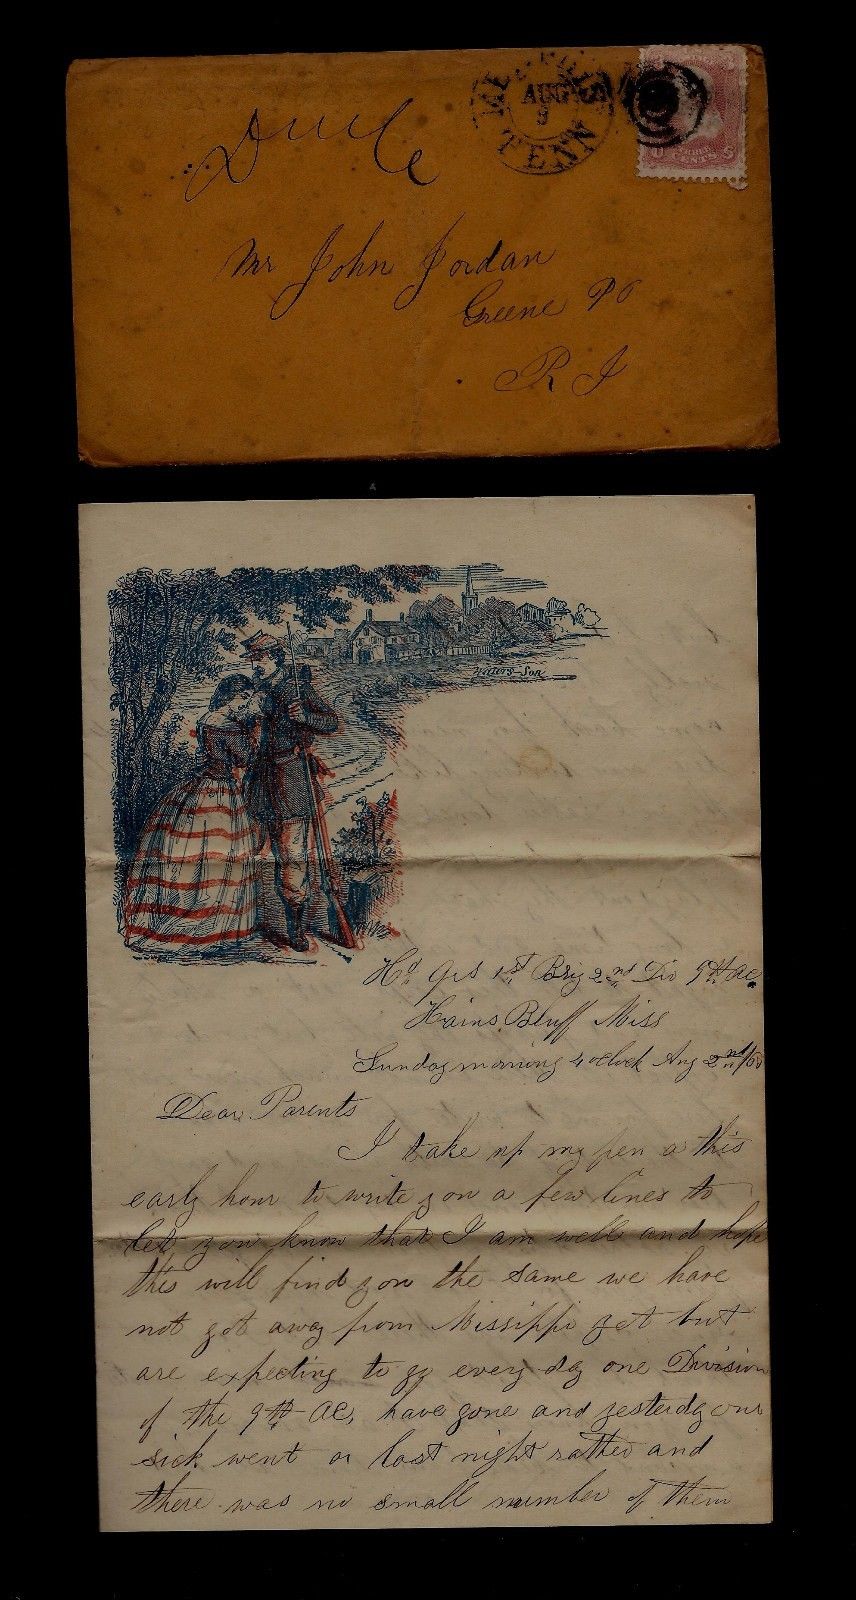 AUG
TENN
THREE
CENTS
Mr John Jordan
Greene PO
R I
Waters-Son
Hd Qrs 1st Brig 2nd Div 9th AC.
Hains Bluff Miss
Sunday morning 4 oclock Aug 2nd/63
Dear Parents
I take up my pen a this
early hour to write you a few lines to
let you know that I am well and hope
this will find you the same we have
not got away from Missippi yet but
are expecting to go every day one Division
of the 9th AC, have gone and yesterday our
sick went or last night rather and
there was no small number of them